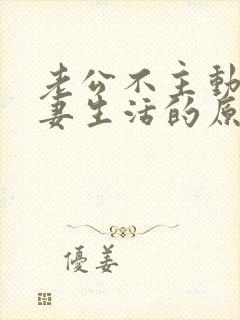 老公不主動
妻生活的原
優姜